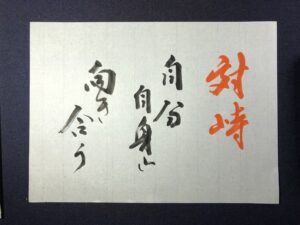 対峙
自分
自身と
向き合う